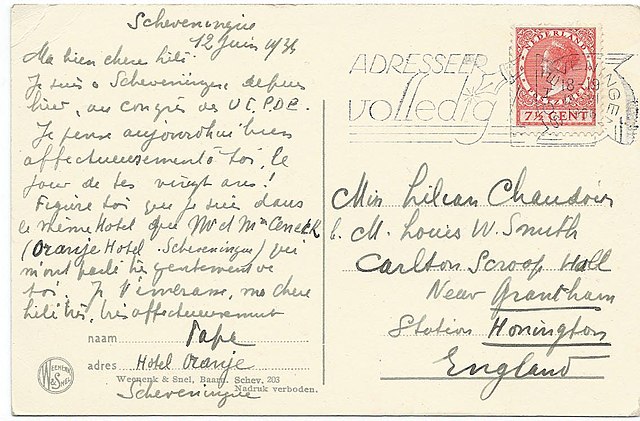 Scheveningue
12 Juin 1936
Ma bien chere
Je suis a Scheveningue depuis
hier, au congrès de
Je pense aujourd'hui bien
affectueusement à toi, le
jour de tes vingt ans!
Figure toi que je suis dans
le même Hotel que Mr et Mme
(Oranje Hotel. Scheveningue) qui
m'ont parlé très gentiment de
toi. Je t'embrasse, ma chere
très affectueusement
naam Papa
adres Hotel Oranje
Weenenk & Snel, Baarn. Schev. 203
Nadruk verboden.
Scheveningue
WEENENK & SNEL
ADRESSEER
volledig
NEDERLAND
7½ CENT
18-19
Miss Lilian Chaudoir
c. M. Louis W. Smith
Carlton Scroop Hall
Near Grantham
Station Honington
England